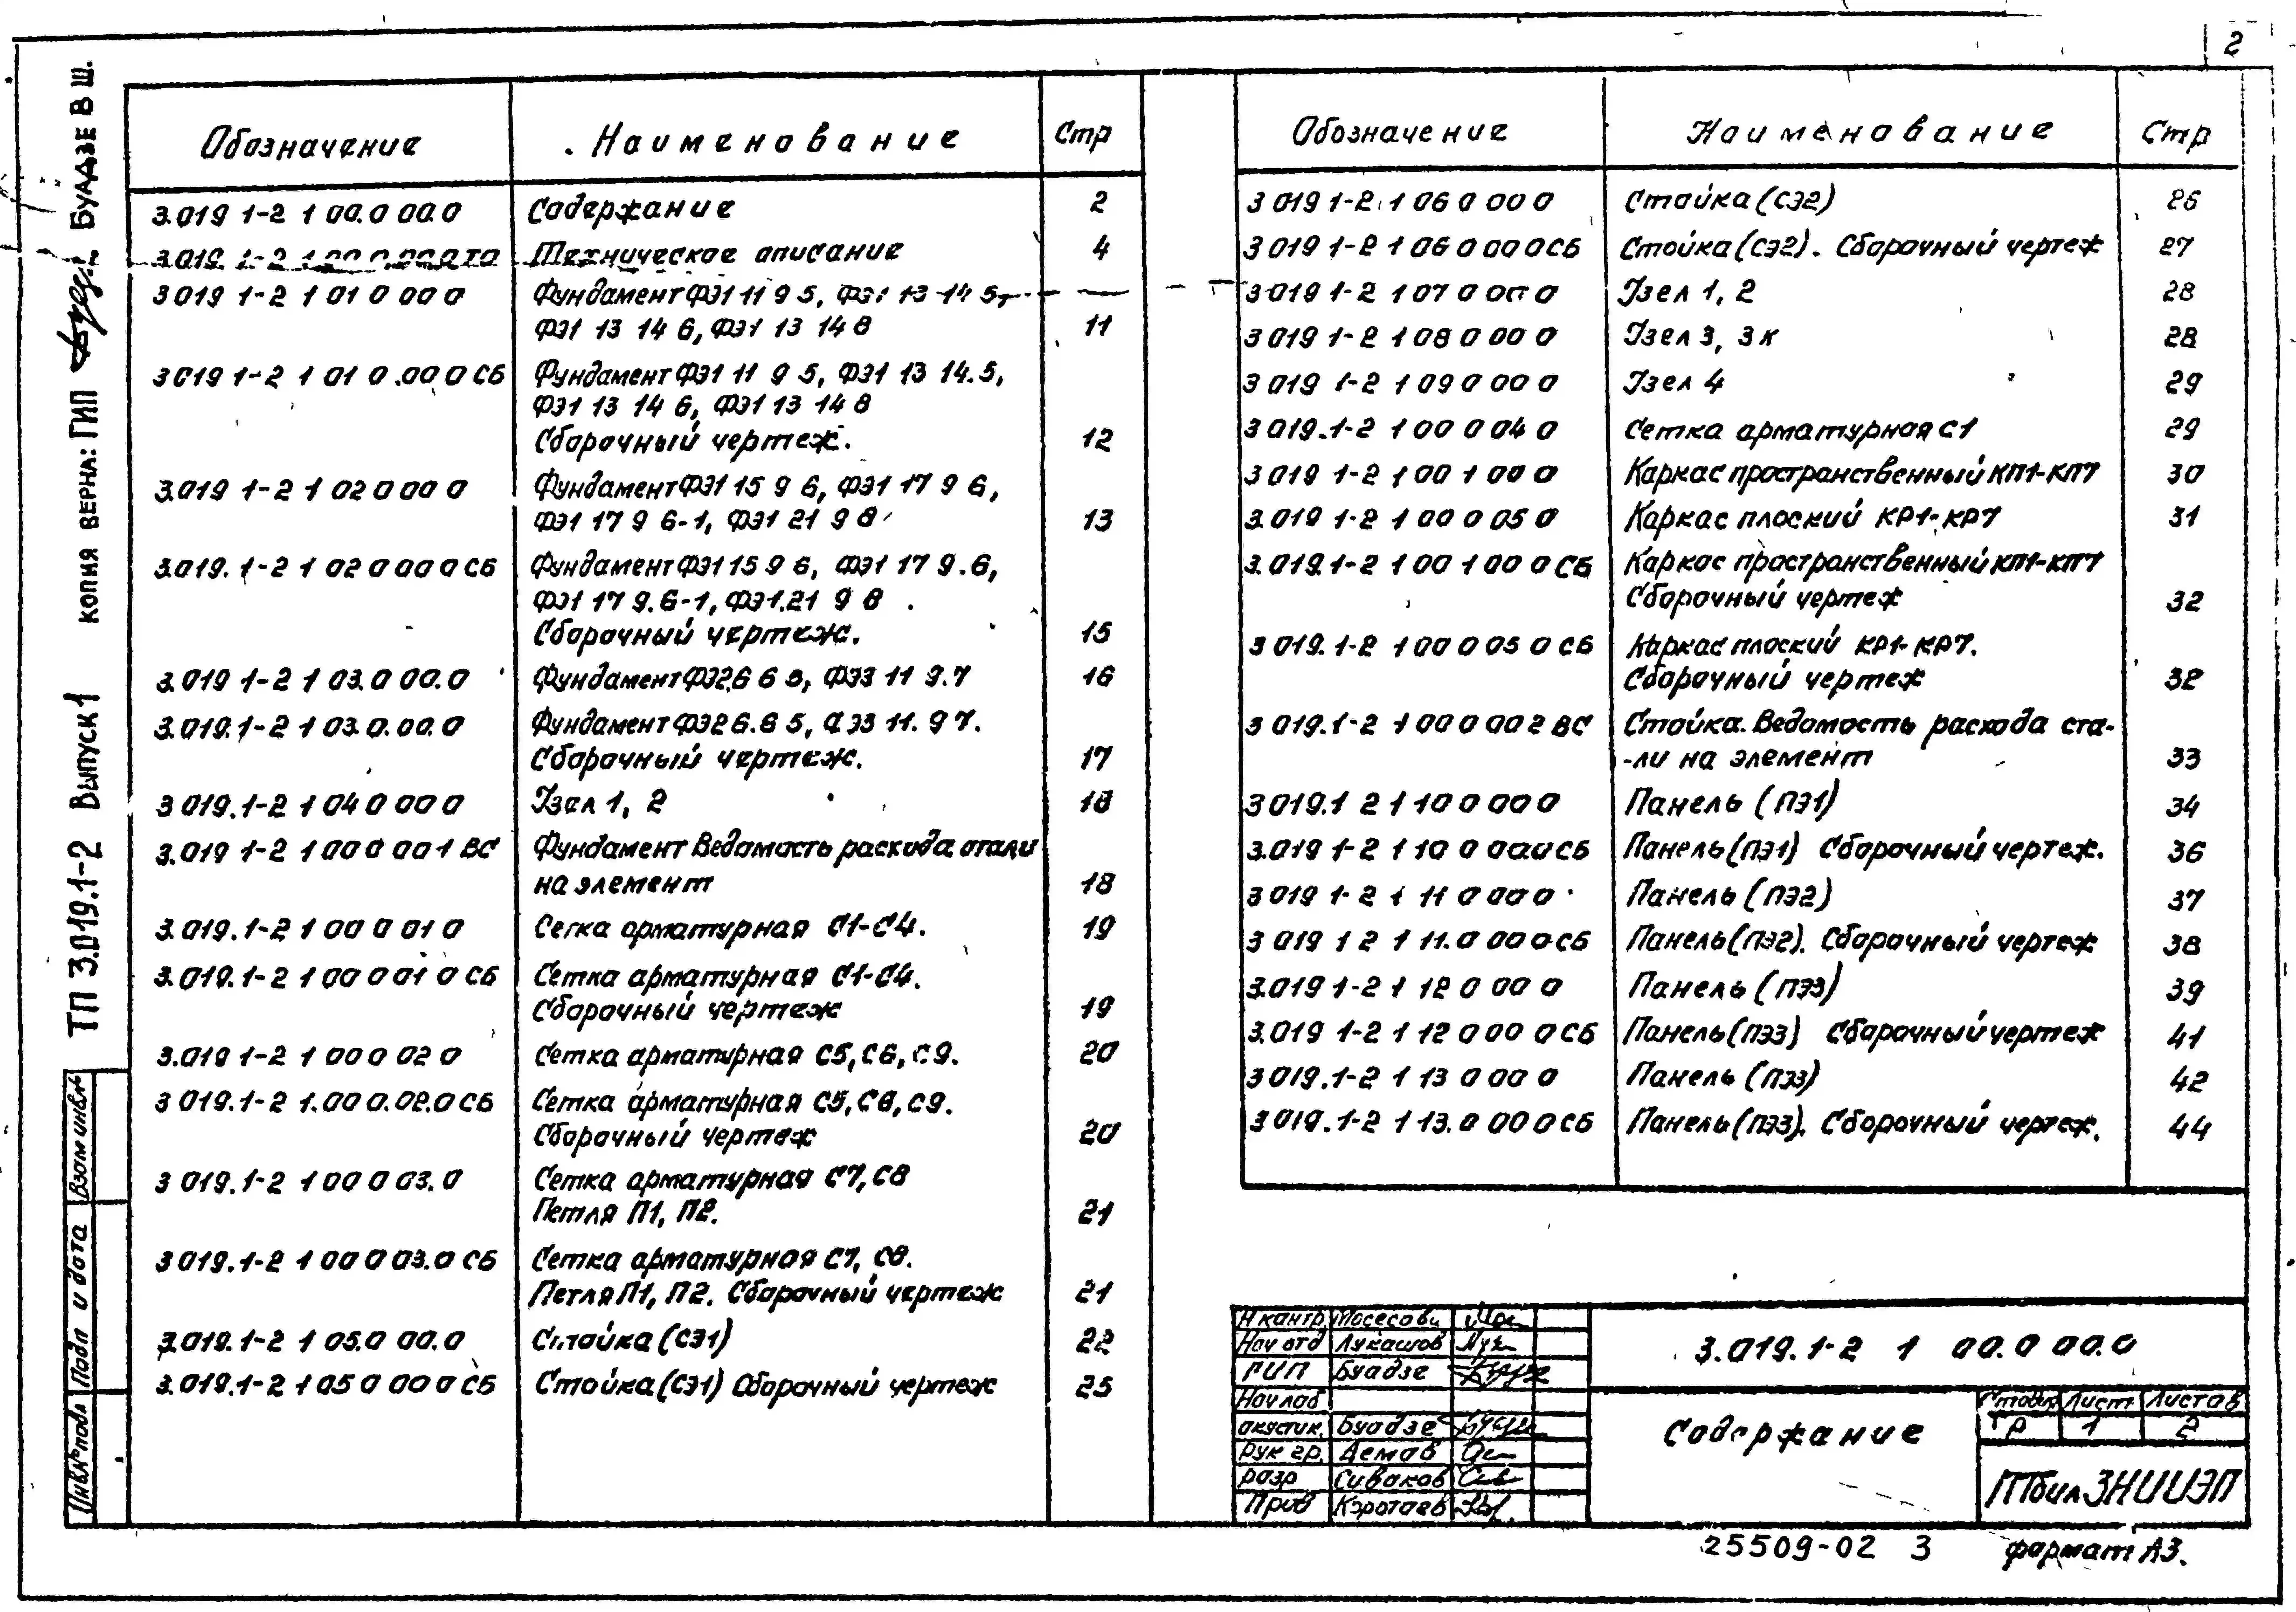 2
Обозначение Наименование Стр
3.019 1-2 1 00.0 00.0 Содержание 2
3.019. 1-2 1 00 0 00.0 ТО Техническое описание 4
3 019 1-2 1 01 0 00 0 Фундамент ФЭ1 11 9 5, ФЭ1 13 14 5,
ФЭ1 13 14 6, ФЭ1 13 14 8 11
3 019 1-2 1 01 0.00 0 СБ Фундамент ФЭ1 11 9 5, ФЭ1 13 14.5,
ФЭ1 13 14 6, ФЭ1 13 14 8
Сборочный чертеж. 12
3.019 1-2 1 02 0 00 0 Фундамент ФЭ1 15 9 6, ФЭ1 17 9 6,
ФЭ1 17 9 6-1, ФЭ1 21 9 8 13
3.019. 1-2 1 02 0 00 0 СБ Фундамент ФЭ1 15 9 6, ФЭ1 17 9.6,
ФЭ1 17 9.6-1, ФЭ1.21 9 8 .
Сборочный чертеж. 15
3.019 1-2 1 03.0 00.0 Фундамент ФЭ2.6 6 5, ФЭ3 11 9.7 16
3.019.1-2 1 03.0.00.0 Фундамент ФЭ2 6.6 5, ФЭ3 11. 9 7.
Сборочный чертеж. 17
3 019.1-2 1 04 0 00 0 Узел 1, 2 18
3.019 1-2 1 00 0 00 1 ВС Фундамент Ведомость расхода стали
на элемент 18
3.019.1-2 1 00 0 01 0 Сетка арматурная С1-С4. 19
3.019.1-2 1 00 0 01 0 СБ Сетка арматурная С1-С4.
Сборочный чертеж 19
3.019 1-2 1 00 0 02 0 Сетка арматурная С5, С6, С9. 20
3 019.1-2 1.00 0.02.0 СБ Сетка арматурная С5, С6, С9.
Сборочный чертеж 20
3 019.1-2 1 00 0 03.0 Сетка арматурная С7, С8
Петля П1, П2. 21
3 019.1-2 1 00 0 03.0 СБ Сетка арматурная С7, С8.
Петля П1, П2. Сборочный чертеж 21
3.019.1-2 1 05.0 00.0 Стойка (СЭ1) 22
3.019.1-2 1 05 0 00 0 СБ Стойка (СЭ1) Сборочный чертеж 25
Обозначение Наименование Стр
3 019 1-2 1 06 0 00 0 Стойка (СЭ2) 26
3 019 1-2 1 06 0 00 0 СБ Стойка (СЭ2). Сборочный чертеж 27
3 019 1-2 1 07 0 00 0 Узел 1, 2 28
3 019 1-2 1 08 0 00 0 Узел 3, 3к 28
3 019 1-2 1 09 0 00 0 Узел 4 29
3 019.1-2 1 00 0 04 0 Сетка арматурная С1 29
3 019 1-2 1 00 1 00 0 Каркас пространственный КП1-КП7 30
3.019 1-2 1 00 0 05 0 Каркас плоский КР1-КР7 31
3.019.1-2 1 00 1 00 0 СБ Каркас пространственный КП1-КП7
Сборочный чертеж 32
3 019.1-2 1 00 0 05 0 СБ Каркас плоский КР1-КР7.
Сборочный чертеж 32
3 019.1-2 1 00 0 00 2 ВС Стойка. Ведомость расхода ста-
-ли на элемент 33
3 019.1 2 1 10 0 00 0 Панель (ПЭ1) 34
3.019 1-2 1 10 0 00 0 СБ Панель (ПЭ1) Сборочный чертеж. 36
3 019 1-2 1 11 0 00 0 Панель (ПЭ2) 37
3 019 1 2 1 11.0 00 0 СБ Панель (ПЭ2). Сборочный чертеж 38
3.019 1-2 1 12 0 00 0 Панель (ПЭ3) 39
3.019 1-2 1 12 0 00 0 СБ Панель (ПЭ3) Сборочный чертеж 41
3 019.1-2 1 13 0 00 0 Панель (ПЭ3) 42
3 019.1-2 1 13.0 00 0 СБ Панель (ПЭ3). Сборочный чертеж. 44
ТП 3.019.1-2 Выпуск 1 КОПИЯ ВЕРНА: ГИП БУАДЗЕ В Ш.
Взам инв.№
Подп и дата
Инв № подл
Н контр
Нач отд Лукашов
ГИП Буадзе
Нач лаб
акустик. Буадзе
рук гр. Демов
разр Сиваков
Пров Коротаев
3.019.1-2 1 00.0 00.0
Содержание
Стадия Лист Листов
ТР 1 2
ТбилЗНИИЭП
25509-02 3 формат А3.